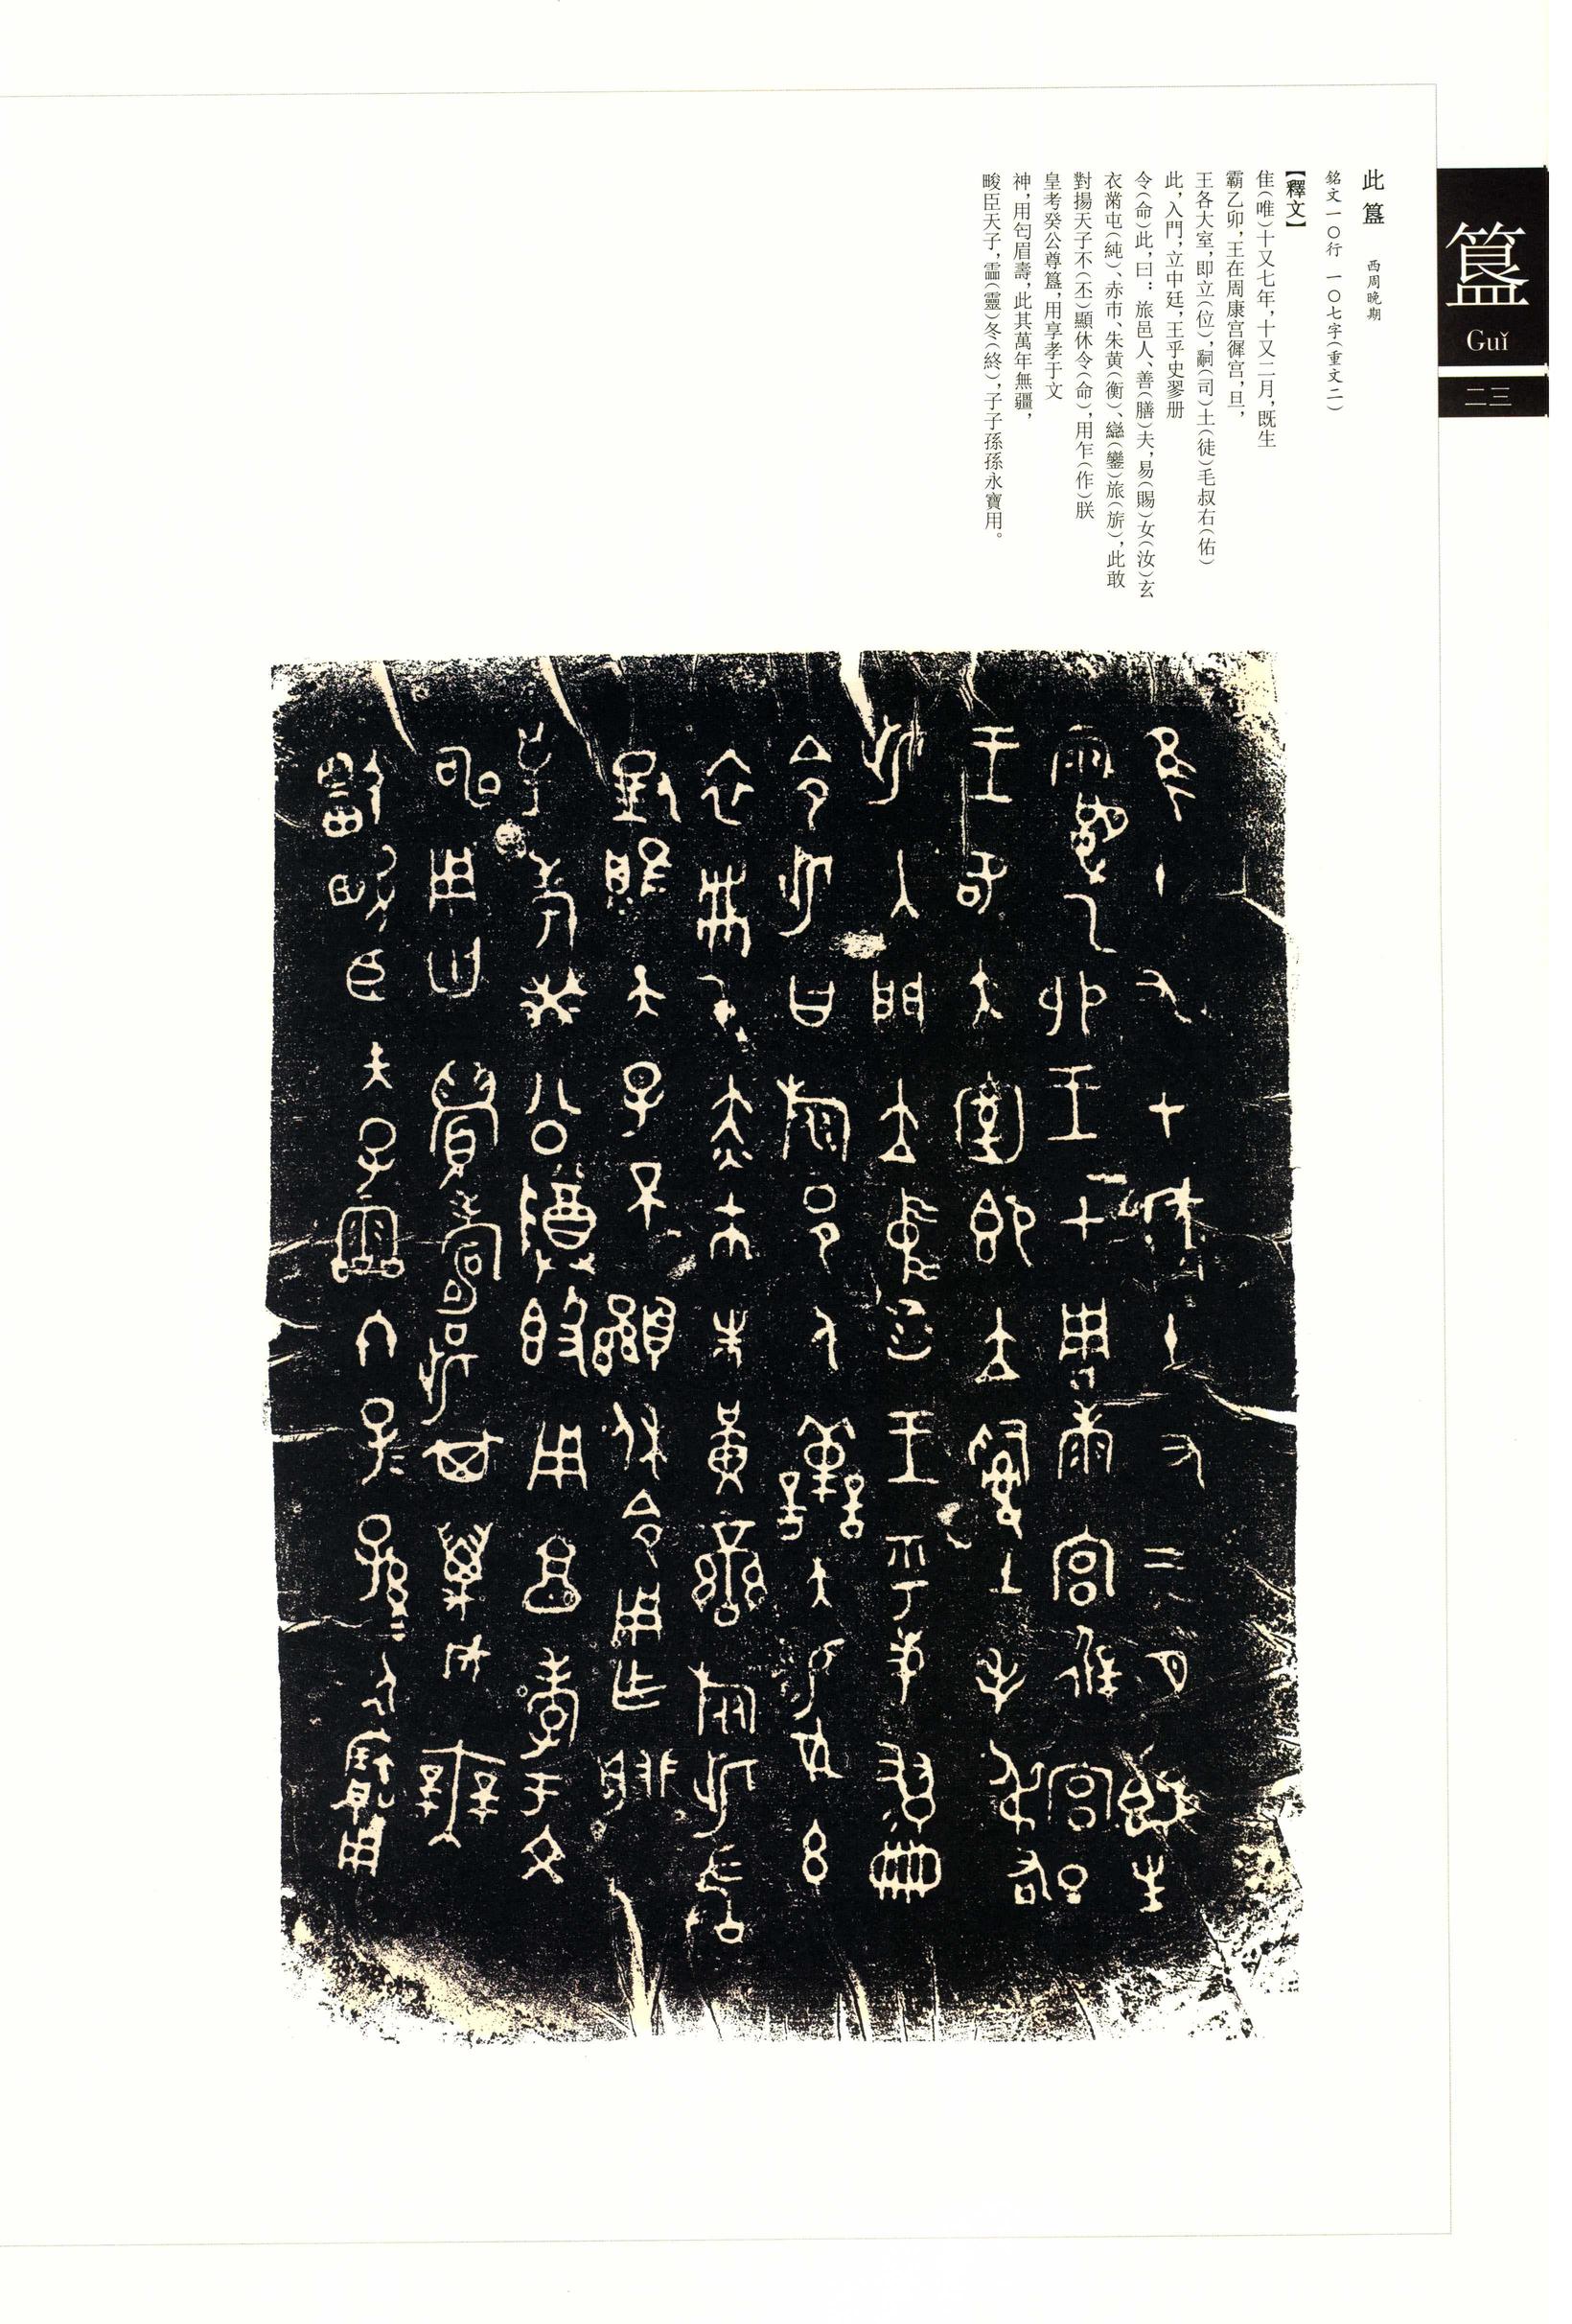 簋
Guǐ
二三
此簋 西周晚期
銘文一〇行 一〇七字(重文二)
【釋文】
隹(唯)十又七年,十又二月,既生
霸乙卯,王在周康宮徲宮,旦,
王各大室,即立(位),嗣(司)土(徒)毛叔右(佑)
此,入門,立中廷,王乎史翏册
令(命)此,曰:旅邑人、善(膳)夫,易(賜)女(汝)玄
衣黹屯(純)、赤巿、朱黄(衡)、䜌(鑾)旅(旂),此敢
對揚天子不(丕)顯休令(命),用乍(作)朕
皇考癸公尊簋,用享孝于文
神,用匄眉壽,此其萬年無疆,
畯臣天子,霝(靈)冬(終),子子孫孫永寶用。